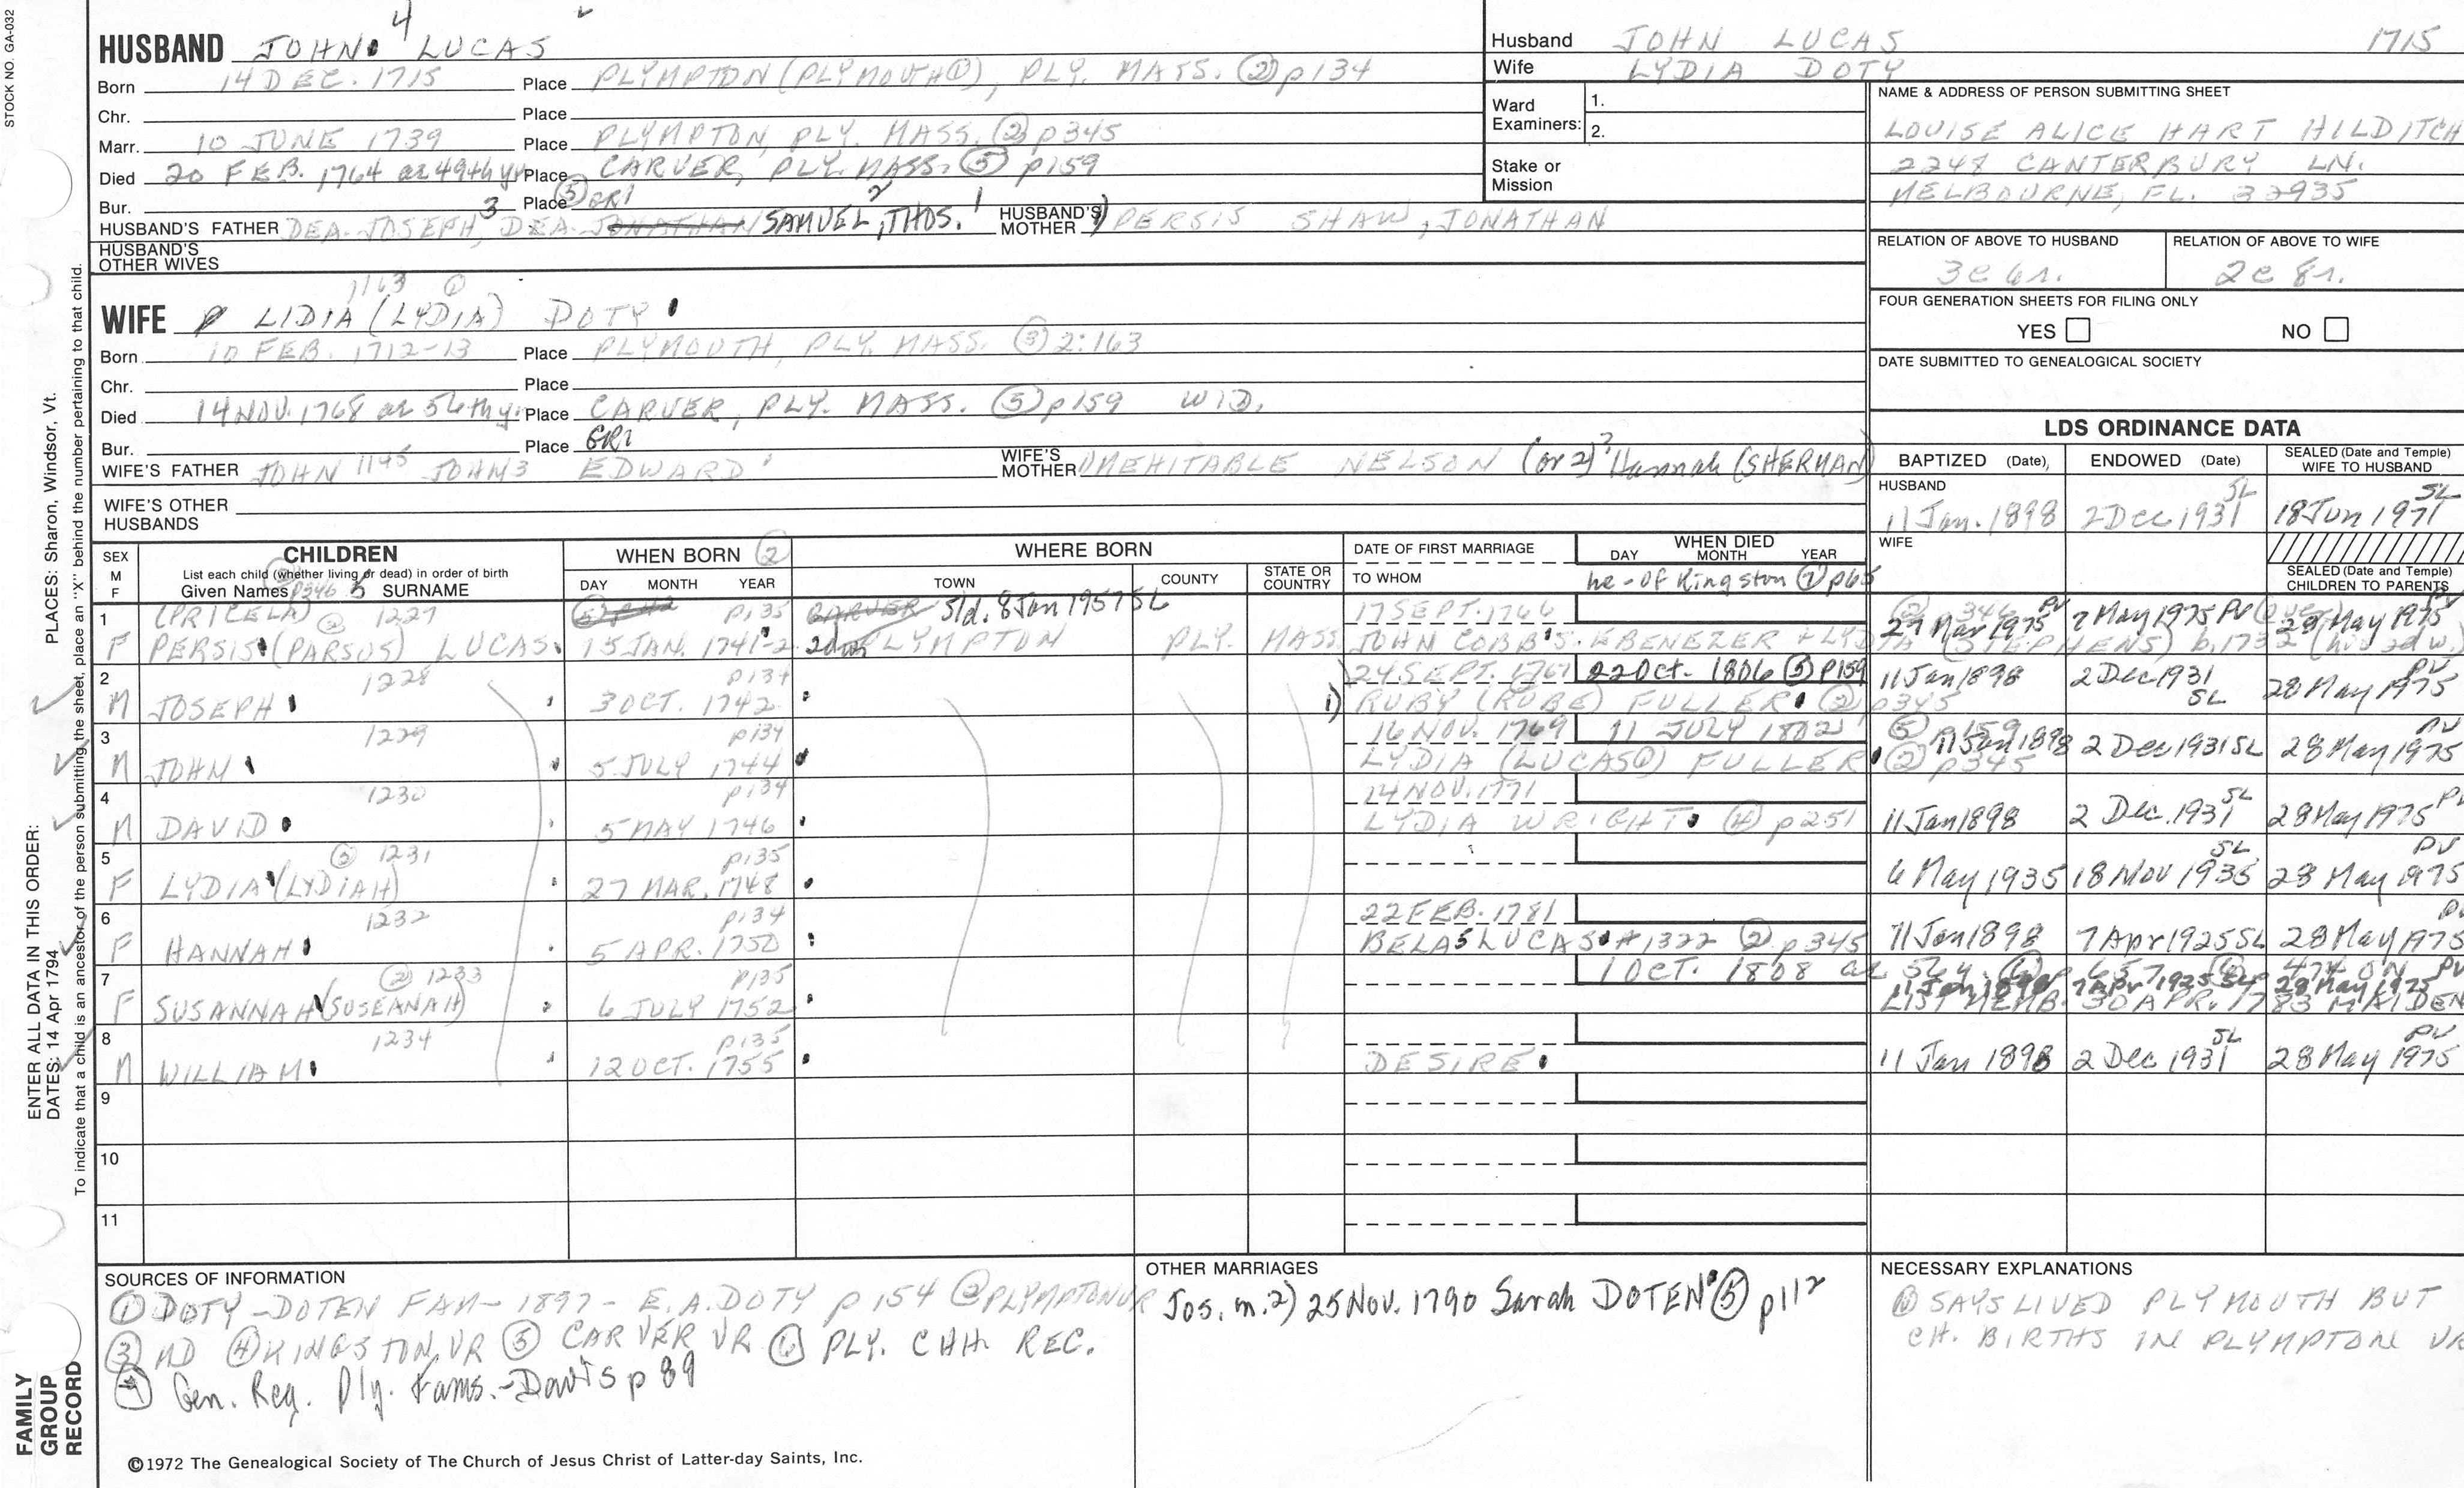 STOCK NO. GA-032
HUSBAND JOHN 4 LUCAS
Born 14 DEC. 1715 Place PLYMPTON (PLYMOUTH①), PLY. MASS. ② p134
Chr. Place
Marr. 10 JUNE 1739 Place PLYMPTON, PLY. MASS. ② p345
Died 20 FEB. 1764 ae 49th yr Place CARVER, PLY. MASS. ⑤ p159
Bur. Place ⑤ GR1
HUSBAND'S FATHER DEA. JOSEPH 3, DEA. JONATHAN SAMUEL 2, THOS. 1 HUSBAND'S MOTHER 1) PERSIS SHAW, JONATHAN
HUSBAND'S OTHER WIVES
1163 ①
WIFE LIDIA (LYDIA) DOTY
Born 10 FEB. 1712-13 Place PLYMOUTH, PLY. MASS. ③ 2:163
Chr. Place
Died 14 NOV. 1768 ae 56th yr Place CARVER, PLY. MASS. ⑤ p159 WID.
Bur. Place GR1
WIFE'S FATHER JOHN 1145 JOHN 3 EDWARD 1 WIFE'S MOTHER 1) MEHITABLE NELSON (or 2)? Hannah (SHERMAN)
WIFE'S OTHER HUSBANDS
Husband JOHN LUCAS 1715
Wife LYDIA DOTY
Ward Examiners: 1.
2.
Stake or Mission
NAME & ADDRESS OF PERSON SUBMITTING SHEET
LOUISE ALICE HART HILDITCH
2248 CANTERBURY LN.
MELBOURNE, FL. 32935
RELATION OF ABOVE TO HUSBAND RELATION OF ABOVE TO WIFE
3c 6r. 2c 8r.
FOUR GENERATION SHEETS FOR FILING ONLY
YES NO
DATE SUBMITTED TO GENEALOGICAL SOCIETY
LDS ORDINANCE DATA
BAPTIZED (Date) ENDOWED (Date) SEALED (Date and Temple) WIFE TO HUSBAND
HUSBAND
11 Jan. 1898 2 Dec 1931 SL 18 Jun 1971 SL
WIFE
SEALED (Date and Temple) CHILDREN TO PARENTS
SEX M F CHILDREN WHEN BORN ② WHERE BORN DATE OF FIRST MARRIAGE WHEN DIED
List each child (whether living or dead) in order of birth DAY MONTH YEAR TOWN COUNTY STATE OR COUNTRY TO WHOM DAY MONTH YEAR
Given Names p346 5 SURNAME he - of Kingston ⑦ p65
1 (PRICELA) ② 1227 p135 CARVER Sld. 8 Jan 1957 SL 17 SEPT. 1766 ② 346 27 Mar 1975 PV 7 May 1975 PV 28 May 1975 PV
F PERSIS (PARSUS) LUCAS 15 JAN. 1741-2 PLYMPTON PLY. MASS. JOHN COBB S. EBENEZER + LYDIA (STEPHENS) b. 1732 (his 2d w.)
2 1228 p134 24 SEPT. 1767 22 Oct. 1806 ⑤ p159 11 Jan 1898 2 Dec 1931 SL 28 May 1975 PV
M JOSEPH 3 OCT. 1742 1) RUBY (RUBE) FULLER ② p345
3 1229 p134 16 NOV. 1769 11 JULY 1802 ⑤ p159 11 Jan 1898 2 Dec 1931 SL 28 May 1975 PV
M JOHN 5 JULY 1744 LYDIA (LUCAS①) FULLER ② p345
4 1230 p134 14 NOV. 1771
M DAVID 5 MAY 1746 LYDIA WRIGHT ④ p251 11 Jan 1898 2 Dec. 1931 SL 28 May 1975 PV
5 ② 1231 p135
F LYDIA (LYDIAH) 27 MAR. 1748 6 May 1935 18 Nov 1935 SL 28 May 1975 PV
6 1232 p134 22 FEB. 1781
F HANNAH 5 APR. 1750 BELA 5 LUCAS #1322 ② p345 11 Jan 1898 7 Apr 1925 SL 28 May 1975
7 ② 1233 p135 1 OCT. 1808 ae 56 y. ⑥ p657 ⑥ 474 ON
11 Jan 1898 7 Apr 1925 SL 28 May 1975 PV
F SUSANNAH (SUSEANAH) 6 JULY 1752 LIST MEMB. 30 APR. 1783 MAIDEN
8 1234 p135
M WILLIAM 12 OCT. 1755 DESIRE 11 Jan 1898 2 Dec 1931 SL 28 May 1975 PV
9
10
11
SOURCES OF INFORMATION
① DOTY-DOTEN FAM - 1897 - E.A. DOTY p 154 ② PLYMPTON VR
③ MD ④ KINGSTON VR ⑤ CARVER VR ⑥ PLY. CHH. REC.
⑦ Gen. Reg. Ply. Fams. - Davis p 89
©1972 The Genealogical Society of The Church of Jesus Christ of Latter-day Saints, Inc.
OTHER MARRIAGES
Jos. m. 2) 25 Nov. 1790 Sarah DOTEN ⑤ p112
NECESSARY EXPLANATIONS
① SAYS LIVED PLYMOUTH BUT
CH. BIRTHS IN PLYMPTON VR
ENTER ALL DATA IN THIS ORDER:
DATES: 14 Apr 1794 PLACES: Sharon, Windsor, Vt.
To indicate that a child is an ancestor of the person submitting the sheet, place an "X" behind the number pertaining to that child.
FAMILY
GROUP
RECORD